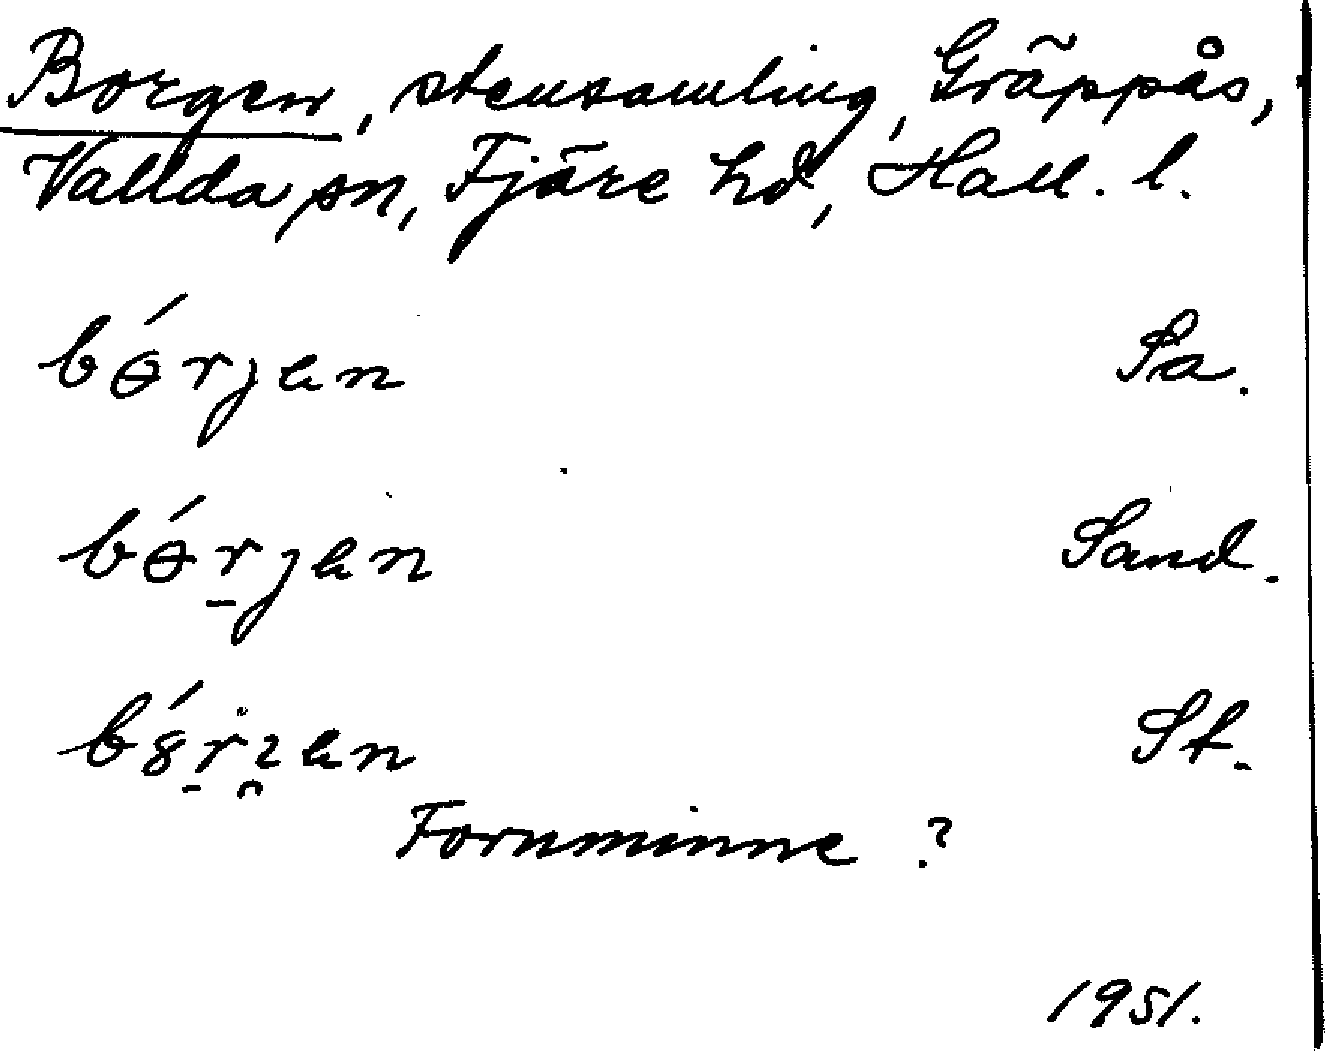 Borgen, stensamling, Gräppås,
Vallda sn, Fjäre hd, Hall. l.
bɵ́rjan Sa.
bɵ́r̠jan Sand.
St.
Fornminne ?
1951.